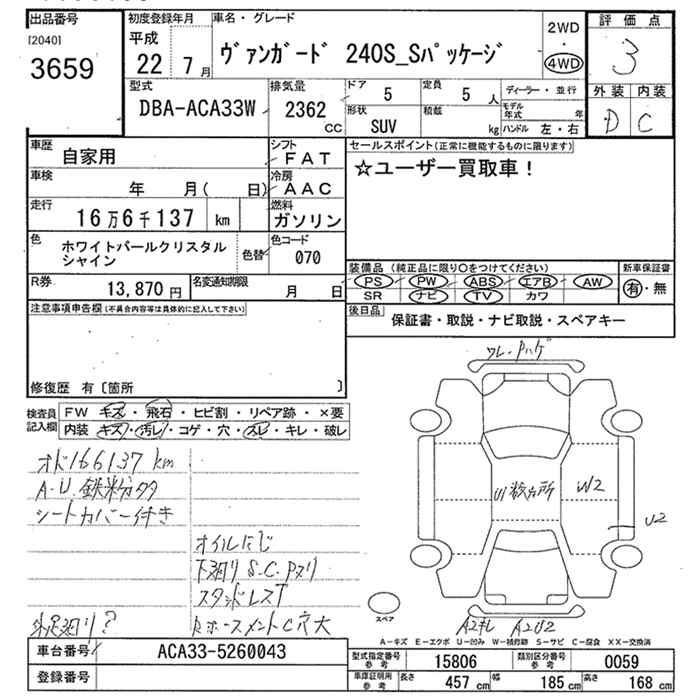 出品番号
[2040]
3659
初度登録年月
平成
22 7月
車名・グレード
ヴァンガード 240S_Sパッケージ
2WD
・
4WD
評価点
3
外装 内装
D C
型式
DBA-ACA33W
排気量
2362
cc
ドア
5
定員
5 人
形状
SUV
積載
kg
ディーラー・並行
モデル年式 年
ハンドル 左・右
車歴
自家用
シフト
FAT
車検
年 月( 日)
冷房
AAC
走行
16万6千137 km
燃料
ガソリン
色
ホワイトパールクリスタル
シャイン
色替
色コード
070
R券
13,870 円
名変通知期限
月 日
セールスポイント(正常に機能するものに限ります)
☆ユーザー買取車!
装備品 (純正品に限り○をつけてください)
PS PW ABS エアB AW
SR ナビ TV カワ
新車保証書
有・無
後日品
保証書・取説・ナビ取説・スペアキー
注意事項申告欄(不具合内容等は具体的に記入して下さい)
修復歴 有〔箇所 〕
検査員
記入欄
FW キズ・飛石・ヒビ割・リペア跡・×要
内装 キズ・汚レ・コゲ・穴・スレ・キレ・破レ
オド166137km
A.U.鉄粉タタ
シートカバー付き
オイルにじ
下廻りS.C.Pヌリ
スタッドレスT
ワレ・Pハゲ
U1数カ所
W2
U2
スペア
A2キレ A2U2
A-キズ E-エクボ U-凹み W-補修跡 S-サビ C-腐食 XX-交換済
車台番号
ACA33-5260043
登録番号
型式指定番号
参考
15806
類別区分番号
参考
0059
車庫証明用
参考
長さ 457 cm 幅 185 cm 高さ 168 cm